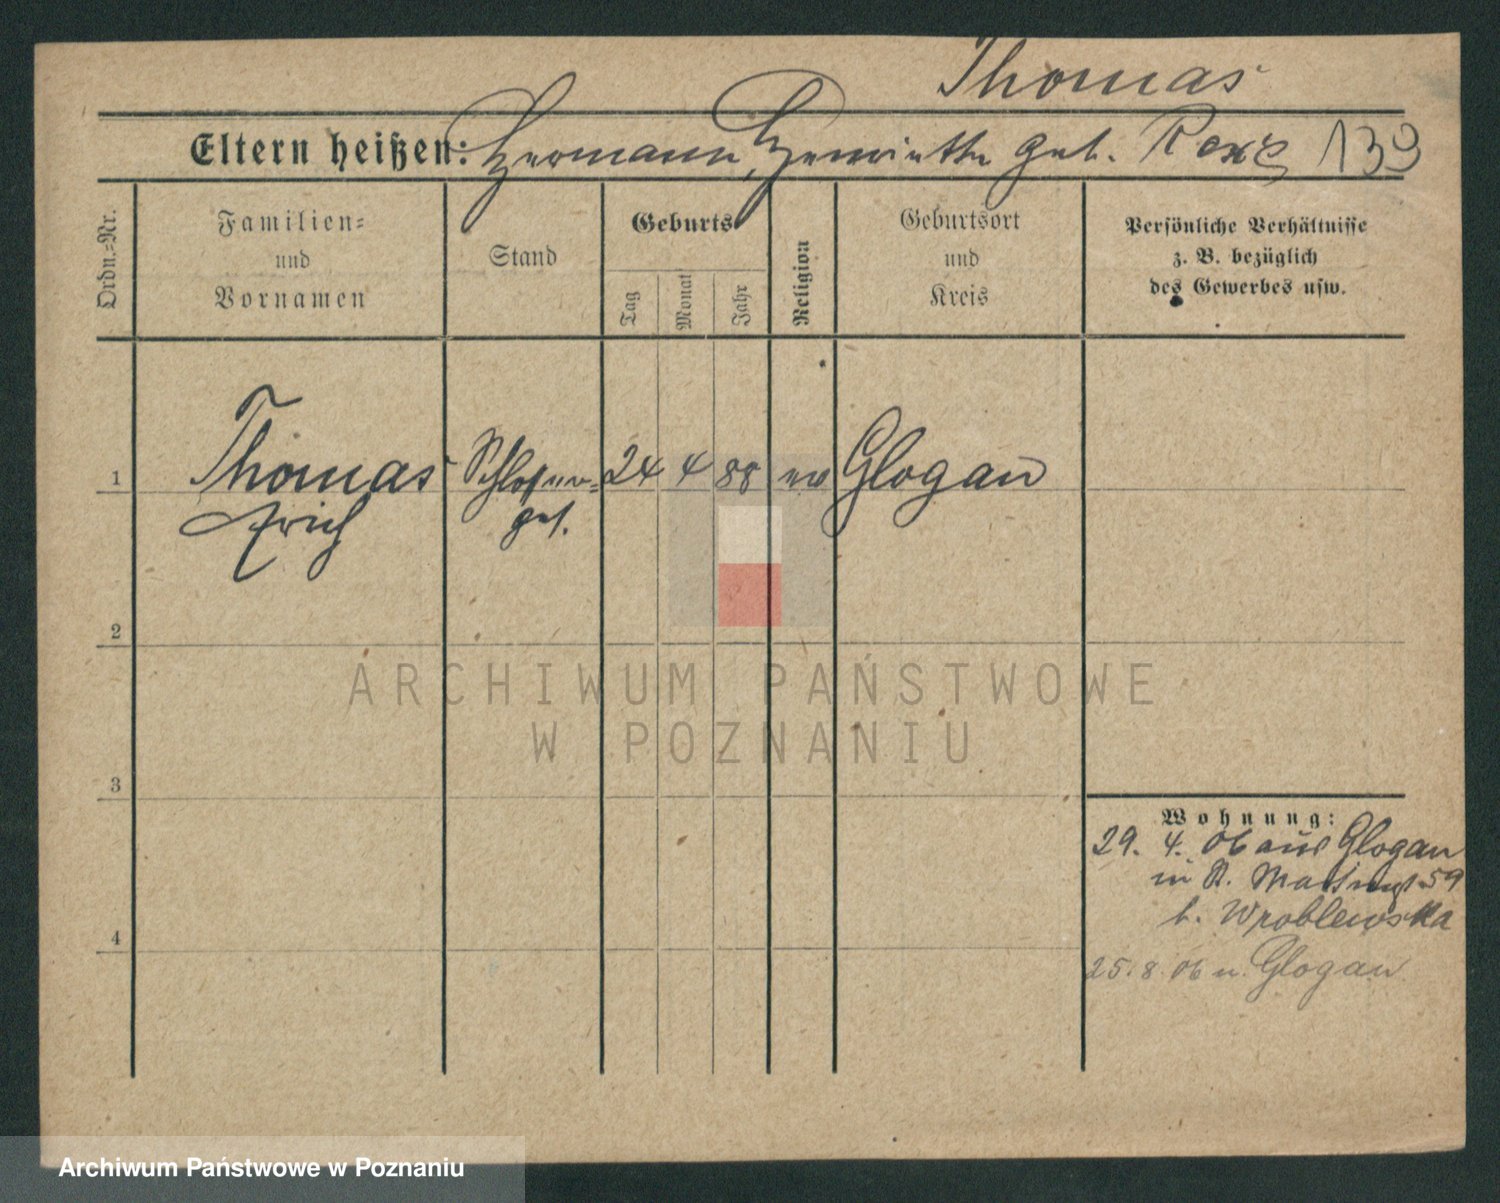 Thomas
Eltern heißen: Hermann, Henriette geb. 139
Ordn.=Nr.
Familien=
und
Vornamen
Stand
Geburts
Tag
Monat
Jahr
Religion
Geburtsort
und
Kreis
Persönliche Verhältnisse
z. B. bezüglich
des Gewerbes usw.
1 Thomas Schlosser= 24 4 88 ev Glogau
Erich
2
3
4
Wohnung:
29. 4. 06 aus Glogau
59
b. Wroblewska
25. 8. 06 n. Glogau
ARCHIWUM PAŃSTWOWE
W POZNANIU
Archiwum Państwowe w Poznaniu